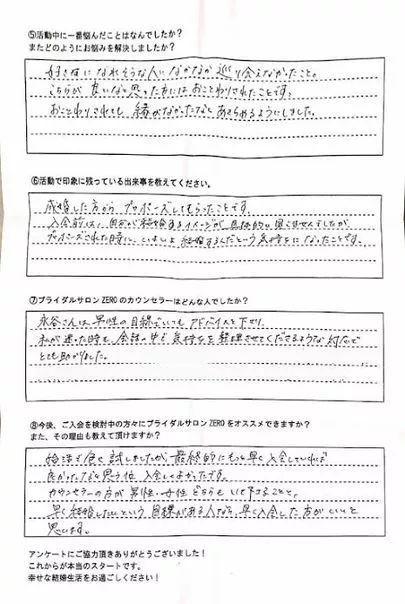 ⑤活動中に一番悩んだことはなんでしたか？
またどのようにお悩みを解決しましたか？
好きになれそうな人になかなか巡り会えなかったこと。
こちらが良いなと思った方にはおことわりされたことです。
おことわりされても、縁がなかったなとあきらめるようにしました。
⑥活動で印象に残っている出来事を教えてください。
成婚した方からプロポーズしてもらったことです。
入会前は、自分が結婚するイメージが具体的に思いませんでしたが、
プロポーズされた時に、いよいよ結婚するんだという気持ちになったことです。
⑦ブライダルサロンZEROのカウンセラーはどんな人でしたか？
永谷さんは男性の目線でいつもアドバイスを下さり、
私が迷った時も会話の中で気持ちを整理させてくださるような対応で
とても助かりました。
⑧今後、ご入会を検討中の方々にブライダルサロンZEROをオススメできますか？
また、その理由も教えて頂けますか？
婚活で色々試しましたが、最終的にもっと早く入会していれば
良かったなと思う位、入会してよかったです。
カウンセラーの方が男性・女性どちらもいて下さることと、
早く結婚したいという目標がある人なら、早く入会した方がいいと
思います。
アンケートにご協力頂きありがとうございました！
これからが本当のスタートです。
幸せな結婚生活をお過ごしください！